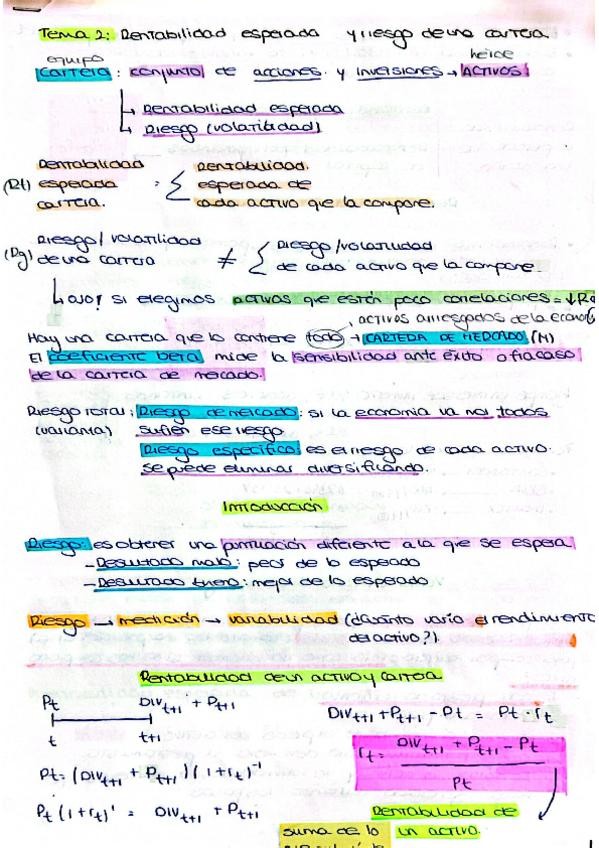 Tema 2: Rentabilidad esperada y riesgo de una cartera
equipo
Cartera: conjunto de acciones y inversiones → ACTIVOS
↳ Rentabilidad esperada
↳ Riesgo (volatilidad)
Rentabilidad esperada cartera. = Σ Rentabilidad. esperada de cada activo que la compone.
Riesgo/volatilidad de una cartera ≠ Σ Riesgo/volatilidad de cada activo que la compone.
↳ OJO! si elegimos activos que estén poco correlaciones =
activos arriesgados de la
Hay una cartera que lo contiene todo → CARTERA DE MERCADO (M)
El coeficiente beta mide la sensibilidad ante éxito o fracaso
de la cartera de mercado.
Riesgo total: Riesgo de mercado: si la economia va mal todos
(varianza) sufren ese riesgo
Riesgo específico: es el riesgo de cada activo.
se puede eliminar diversificando.
Introducción
Riesgo: es obtener una puntuación diferente a la que se espera
- Resultado malo: peor de lo esperado
- Resultado bueno: mejor de lo esperado
Riesgo → medición → variabilidad (¿cuánto varía el rendimiento
del activo?).
Rentabilidad de un activo y cartera
Pt DIVt+1 + Pt+1
t t+1
DIVt+1 + Pt+1 - Pt = Pt · rt
rt = (DIVt+1 + Pt+1 - Pt) / Pt
Pt = (DIVt+1 + Pt+1)(1+rt)^-1
Pt (1+rt)^1 = DIVt+1 + Pt+1
Rentabilidad de
un activo.
suma de lo